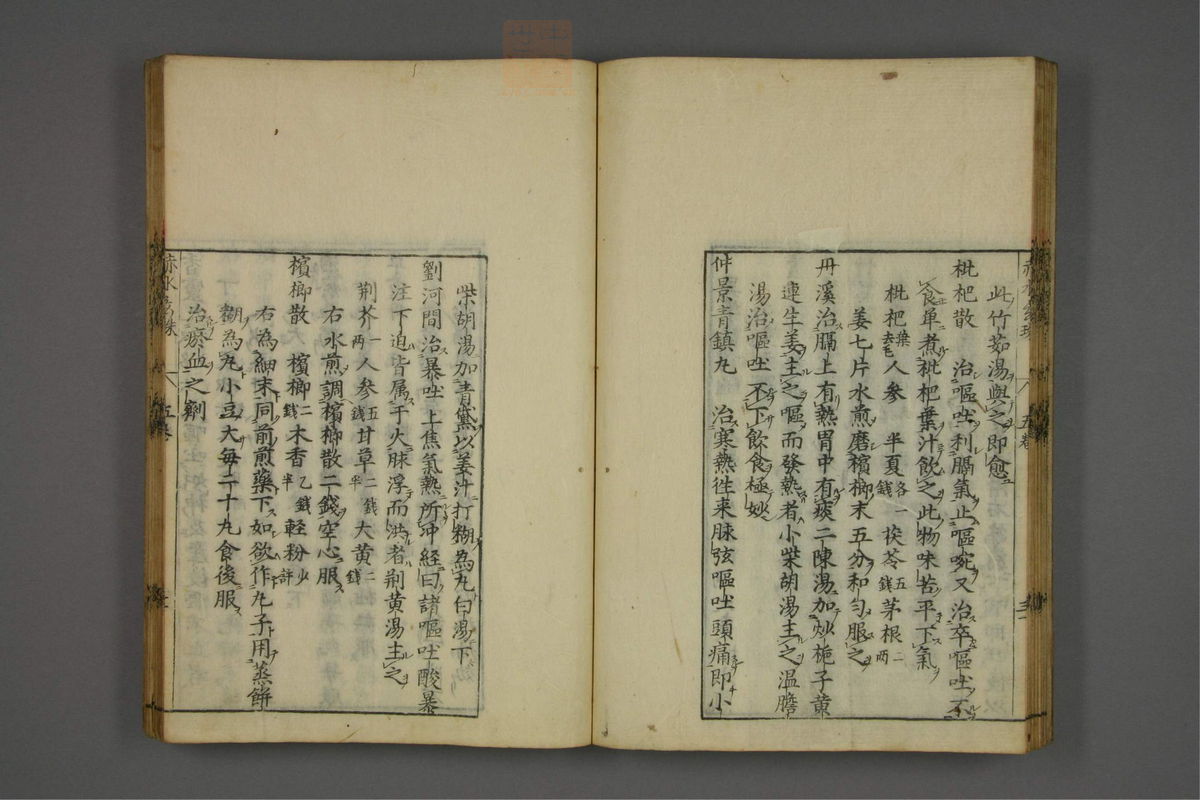 此竹茹湯與之即愈
枇杷散　治嘔吐利膈氣止嘔啘又治卒嘔吐不
食单煮枇杷葉汁飲之此物味苦平下氣
枇杷葉去毛人参　半夏各一錢茯苓五錢茅根二両
姜七片水煎磨檳榔末五分和匀服之
丹溪治膈上有熱胃中有痰二陳湯加炒梔子黄
連生姜主之嘔而發熱者小柴胡湯主之温膽
湯治嘔吐不下飲食極妙
仲景青鎮丸　治寒熱徃来脉弦嘔吐頭痛即小
柴胡湯加青黛以姜汁打糊為丸白湯下
劉河間治暴吐上焦氣熱所冲經曰諸嘔吐酸暴
注下迫皆属于火脉浮而洪者荆黄湯主之
荆芥一両人参五錢甘草二錢半大黄二錢
右水煎調檳榔散二錢空心服
檳榔散　檳榔二錢木香乙錢半軽粉少許
右為細末同前煎藥下如欲作丸子用蒸餅
糊為丸小豆大每二十丸食後服
治瘀血之劑
赤水玄珠　五卷